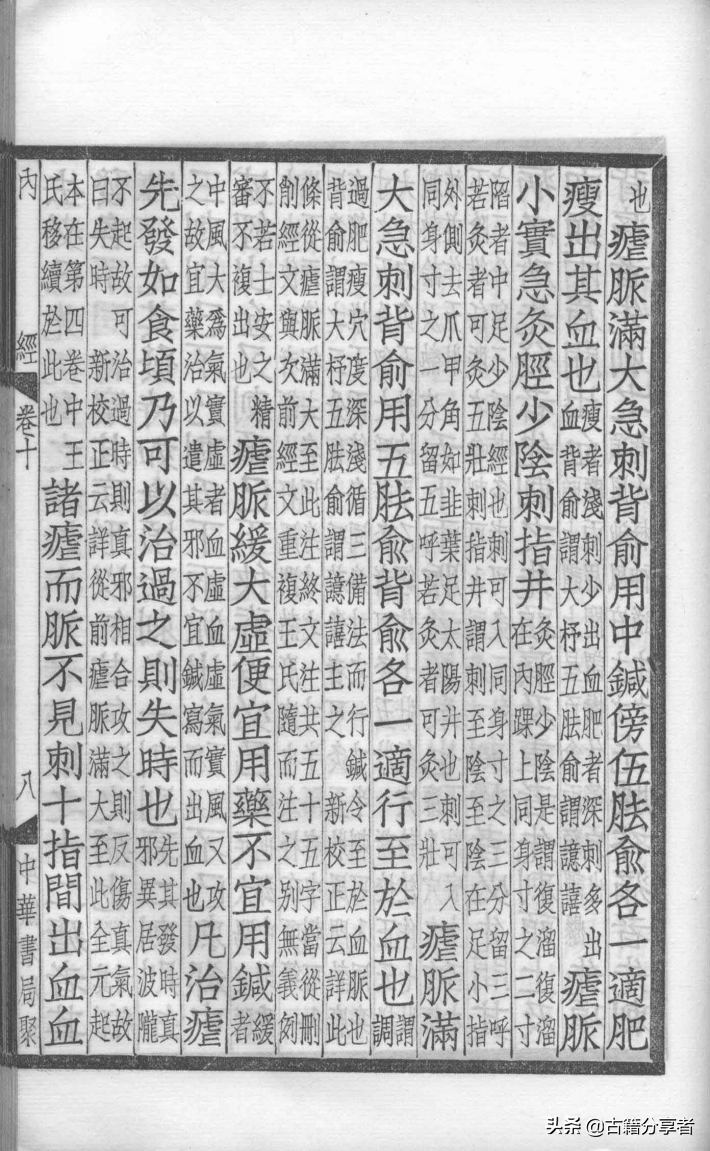 也瘧脈滿大急刺背俞用中鍼傍伍胠俞各一適肥
瘦出其血也瘦者淺刺少出血肥者深刺多出
血背俞謂大杼五胠俞謂譩譆瘧脈
小實急灸脛少陰刺指井灸脛少陰是謂復溜復溜
在內踝上同身寸之二寸
陷者中足少陰經也刺可入同身寸之三分留三呼
若灸者可灸五壯刺指井謂刺至陰至陰在足小指
外側去爪甲角如韭葉足太陽井也刺可入
同身寸之一分留五呼若灸者可灸三壯瘧脈滿
大急刺背俞用五胠俞背俞各一適行至於血也謂
調
過肥瘦穴度深淺循三備法而行鍼令至於血脈也
背俞謂大杼五胠俞謂譩譆主之 新校正云詳此
條從瘧脈滿大至此注終文注共五十五字當從刪
削經文與次前經文重複王氏隨而注之别無義
不若士安之精
審不複出也瘧脈緩大虛便宜用藥不宜用鍼緩
者
中風大爲氣實虛者血虛血虛氣實風又攻
之故宜藥治以遣其邪不宜鍼寫而出血也凡治瘧
先發如食頃乃可以治過之則失時也先其發時真
邪異居波隴
不起故可治過時則真邪相合攻之則反傷真氣故
曰失時 新校正云詳從前瘧脈滿大至此全元起
本在第四卷中王
氏移續於此也諸瘧而脈不見刺十指間出血血
內 經 卷十 八 中華書局聚
头条 @古籍分享者